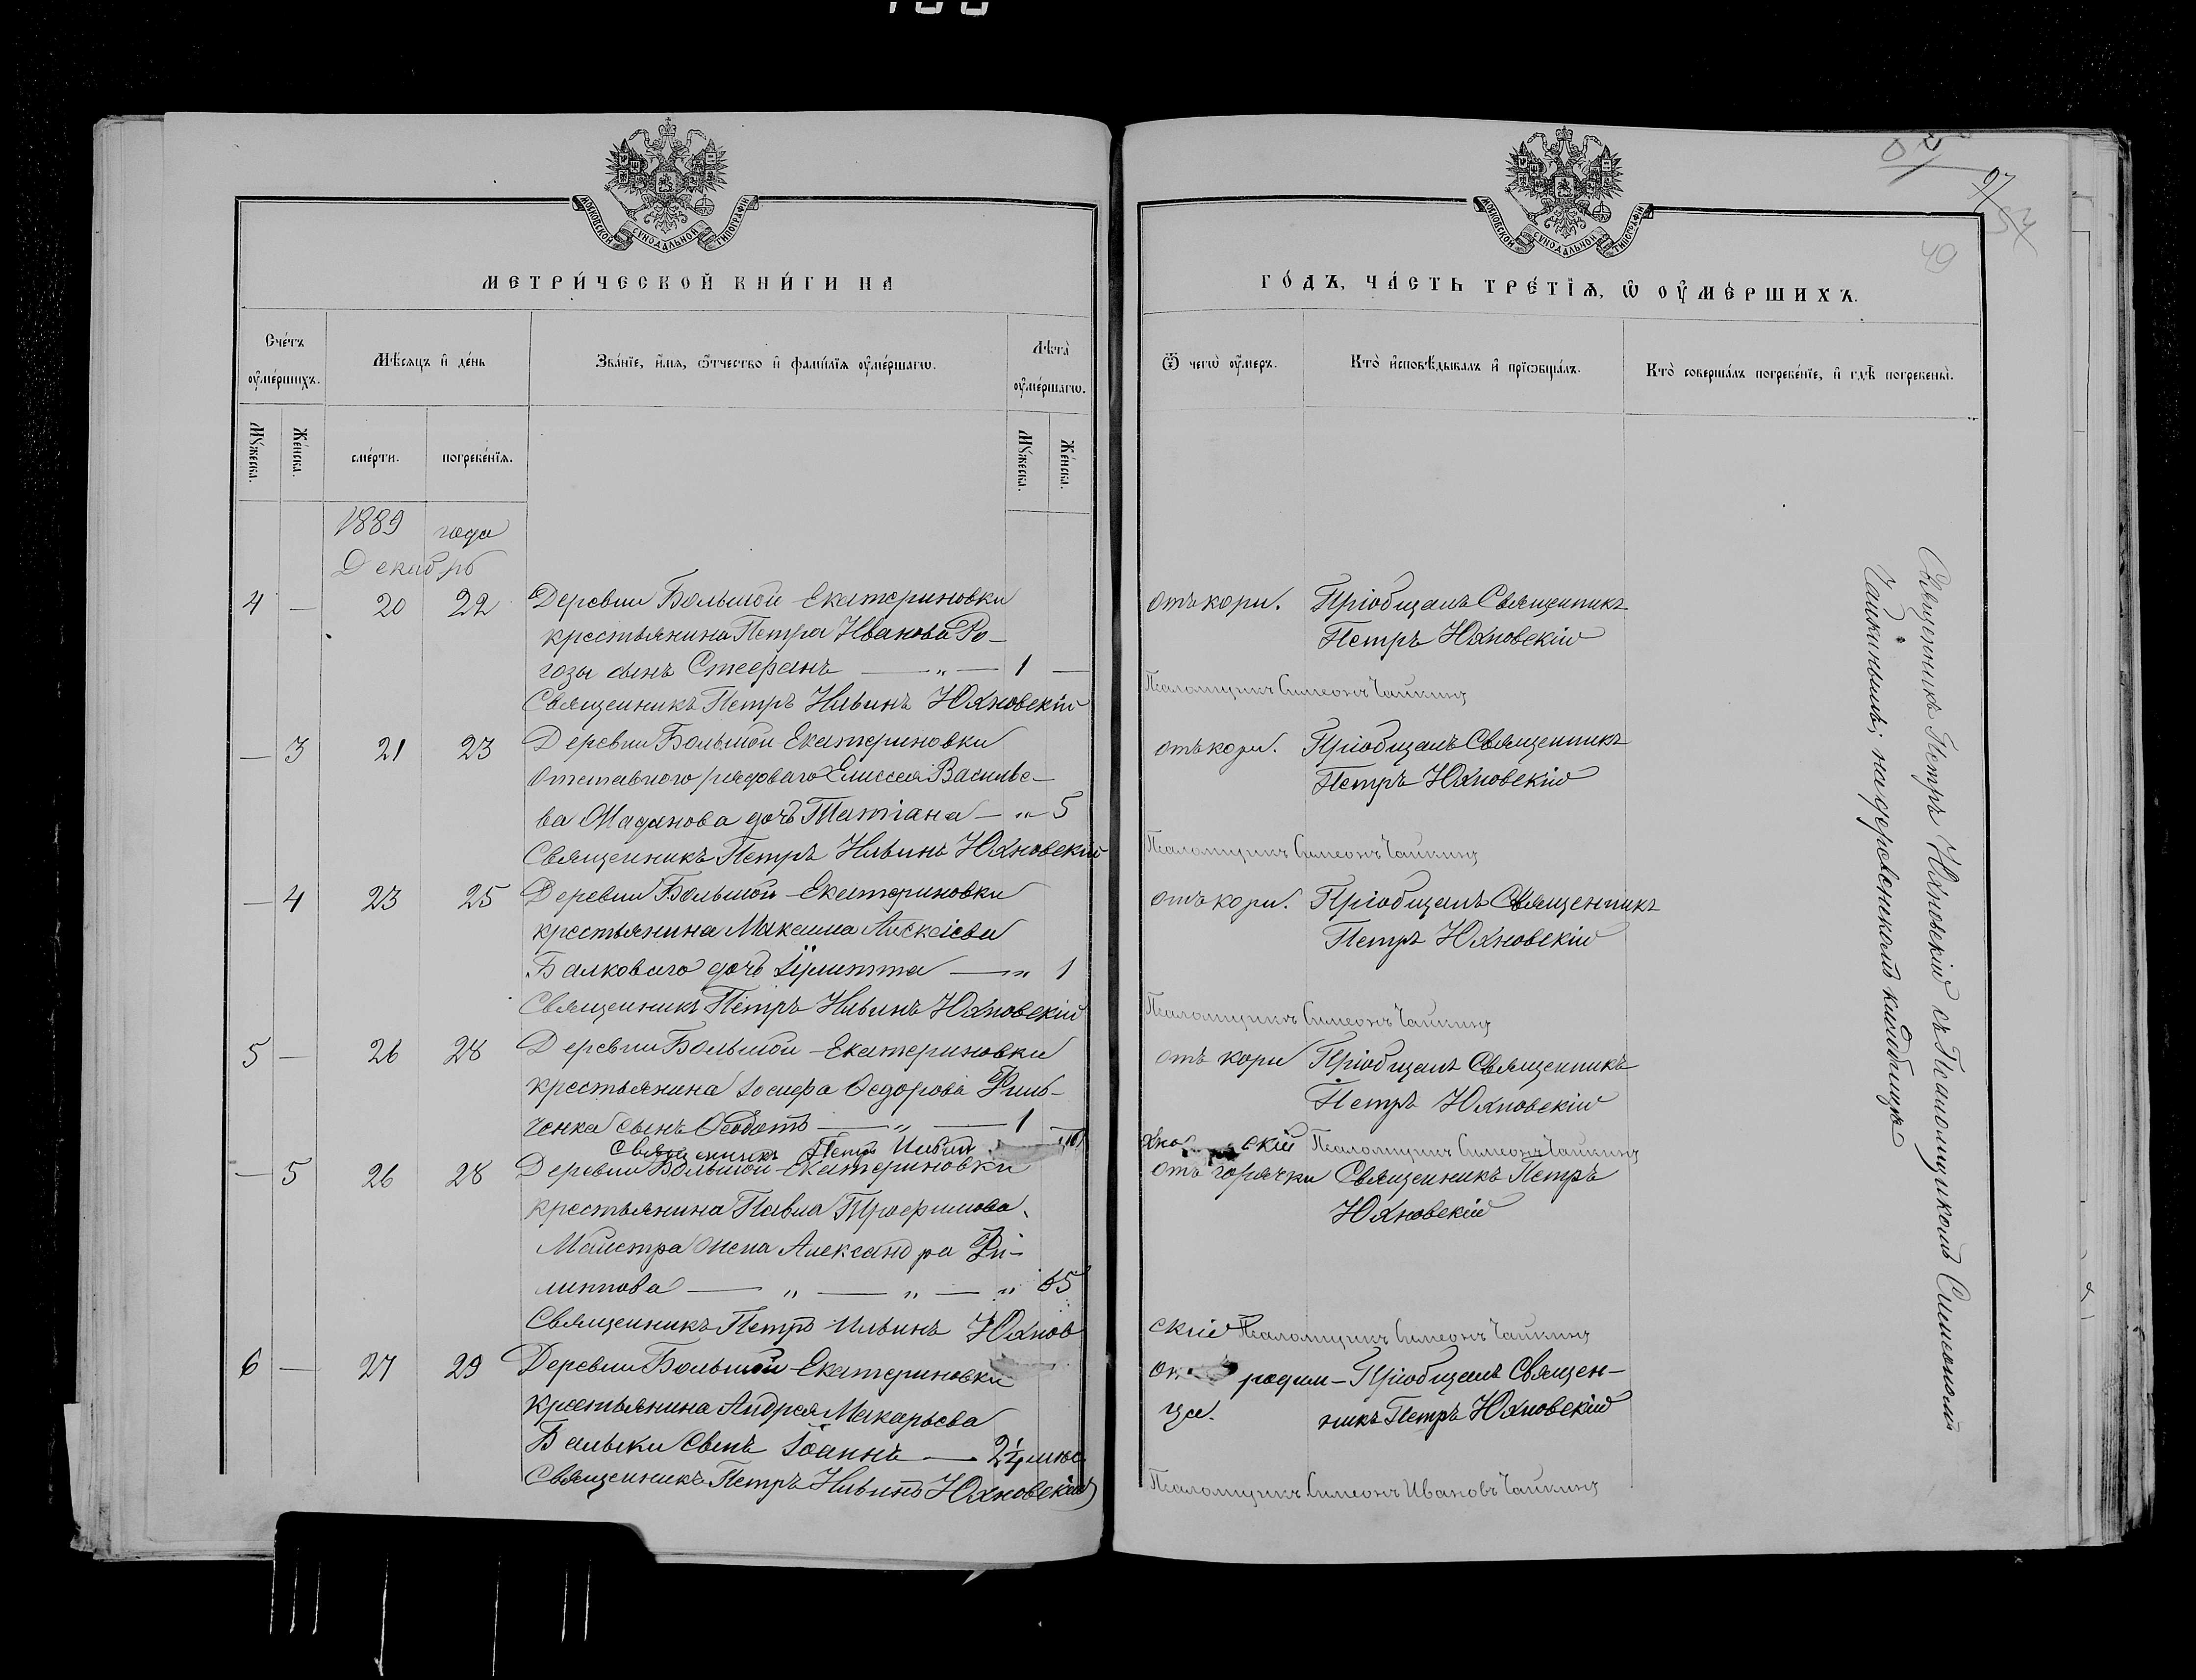 МОСКОВСКОЙ СѴНОДАЛЬНОЙ ТИПОГРАФІИ
МЕТРИ́ЧЕСКОЙ КНИ́ГИ НА
Сче́тъ ᲂу҆ме́ршихъ.
Мѣ́сяцъ и҆ де́нь
Зва́нїе, и҆́мѧ, ѻ҆́тчество и҆ фами́лїѧ ᲂу҆ме́ршагѡ.
Лѣ́та ᲂу҆ме́ршагѡ.
Мꙋ́жеска.
Же́нска.
сме́рти.
погребе́нїѧ.
Мꙋ́жеска.
Же́нска.
1889 года
Декабрь
4 — 20 22 Деревни Большой-Екатериновки
крестьянина Петра Иванова Ро-
гозы сынъ Стефанъ — „ — 1 —
Священникъ Петръ Ильинъ Юхновскій
— 3 21 23 Деревни Большой Екатериновки
отставного рядоваго Елиссея Василье-
ва Маданова дочь Татіана — „ 5
Священникъ Петръ Ильинъ Юхновскій
— 4 23 25 Деревни Большой-Екатериновки
крестьянина Максима Алексіева
Балковаго дочь Іулитта — „ 1
Священникъ Петръ Ильинъ Юхновскій
5 — 26 28 Деревни Большой-Екатериновки
крестьянина Іосифа Ѳедорова Филь-
ченка сынъ Ѳеодотъ — „ — 1 —
Священникъ Петръ Ильинъ
— 5 26 28 Деревни Большой-Екатериновки
крестьянина Павла Трофимова
Маистра жена Александра Фи-
липпова — „ — „ — „ 65
Священникъ Петръ Ильинъ Юхнов
6 — 27 29 Деревни Большой-Екатериновки
крестьянина Андрея Макарьева
Балыки сынъ Іоаннъ — 2¼
Священникъ Петръ Ильинъ Юхновскій
МОСКОВСКОЙ СѴНОДАЛЬНОЙ ТИПОГРАФІИ
49
ГО́ДЪ, ЧА́СТЬ ТРЕ́ТЇѦ, Ѡ҆ ОУ҆МЕ́РШИХЪ.
Ѿ чегѡ̀ ᲂу҆́меръ.
Кто̀ и҆сповѣ́дывалъ и҆ прїѡбща́лъ.
Кто̀ соверша́лъ погребе́нїе, и҆ гдѣ̀ погребены̀.
отъ кори. Пріобщалъ Священникъ
Петръ Юхновскій
Псаломщикъ Симеонъ Чайкинъ
отъ кори. Пріобщалъ Священникъ
Петръ Юхновскій
Псаломщикъ Симеонъ Чайкинъ
отъ кори. Пріобщалъ Священникъ
Петръ Юхновскій
Псаломщикъ Симеонъ Чайкинъ
отъ кори Пріобщалъ Священникъ
Петръ Юхновскій
скій Псаломщикъ Симеонъ Чайкинъ
отъ горячки Священникъ Петръ
Юхновскій
скій Псаломщикъ Симеонъ Чайкинъ
родим- Пріобщалъ Священ-
ца. никъ Петръ Юхновскій
Псаломщикъ Симеонъ Ивановъ Чайкинъ
Священникъ Петръ Юхновскій съ Псаломщикомъ Симеономъ
Чайкинымъ; на деревенскомъ кладбищѣ